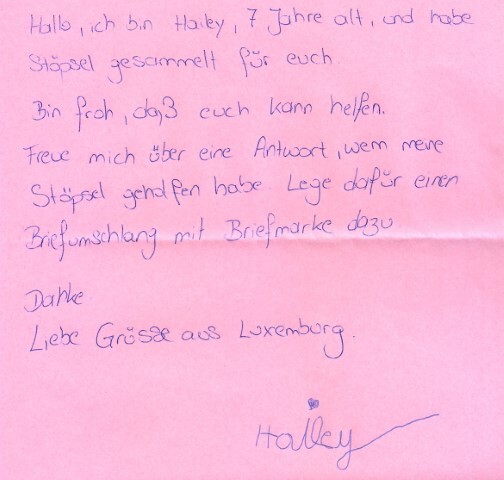 Hallo, ich bin Hailey, 7 Jahre alt, und habe
Stöpsel gesammelt für euch.
Bin froh, daß euch kann helfen.
Freue mich über eine Antwort, wem meine
Stöpsel geholfen habe. Lege dafür einen
Briefumschlang mit Briefmarke dazu.
Danke
Liebe Grüsse aus Luxemburg.
Hailey